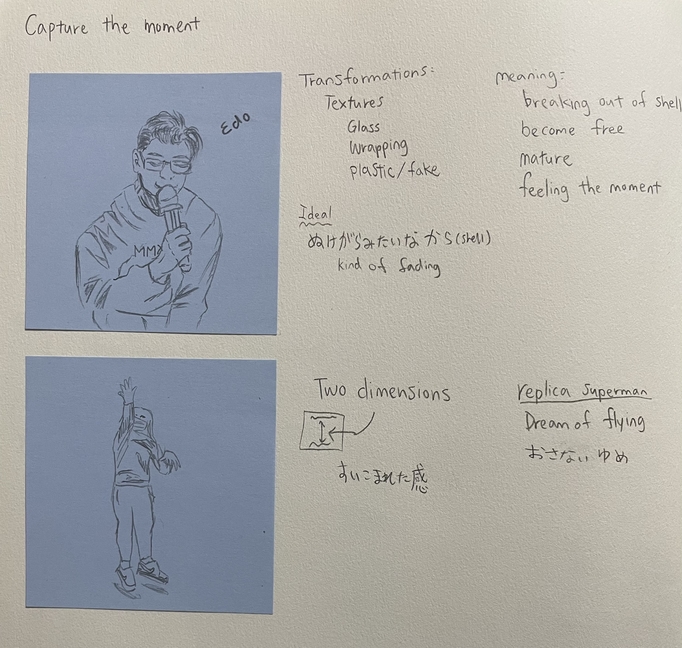 Capture the moment
Edo
MMX
Transformations:
Textures
Glass
Wrapping
plastic/fake
Ideal
ぬけがらみたいなから(shell)
kind of fading
meaning:
breaking out of shell
become free
mature
feeling the moment
Two dimensions
すいこまれた感
replica superman
Dream of flying
おさないゆめ